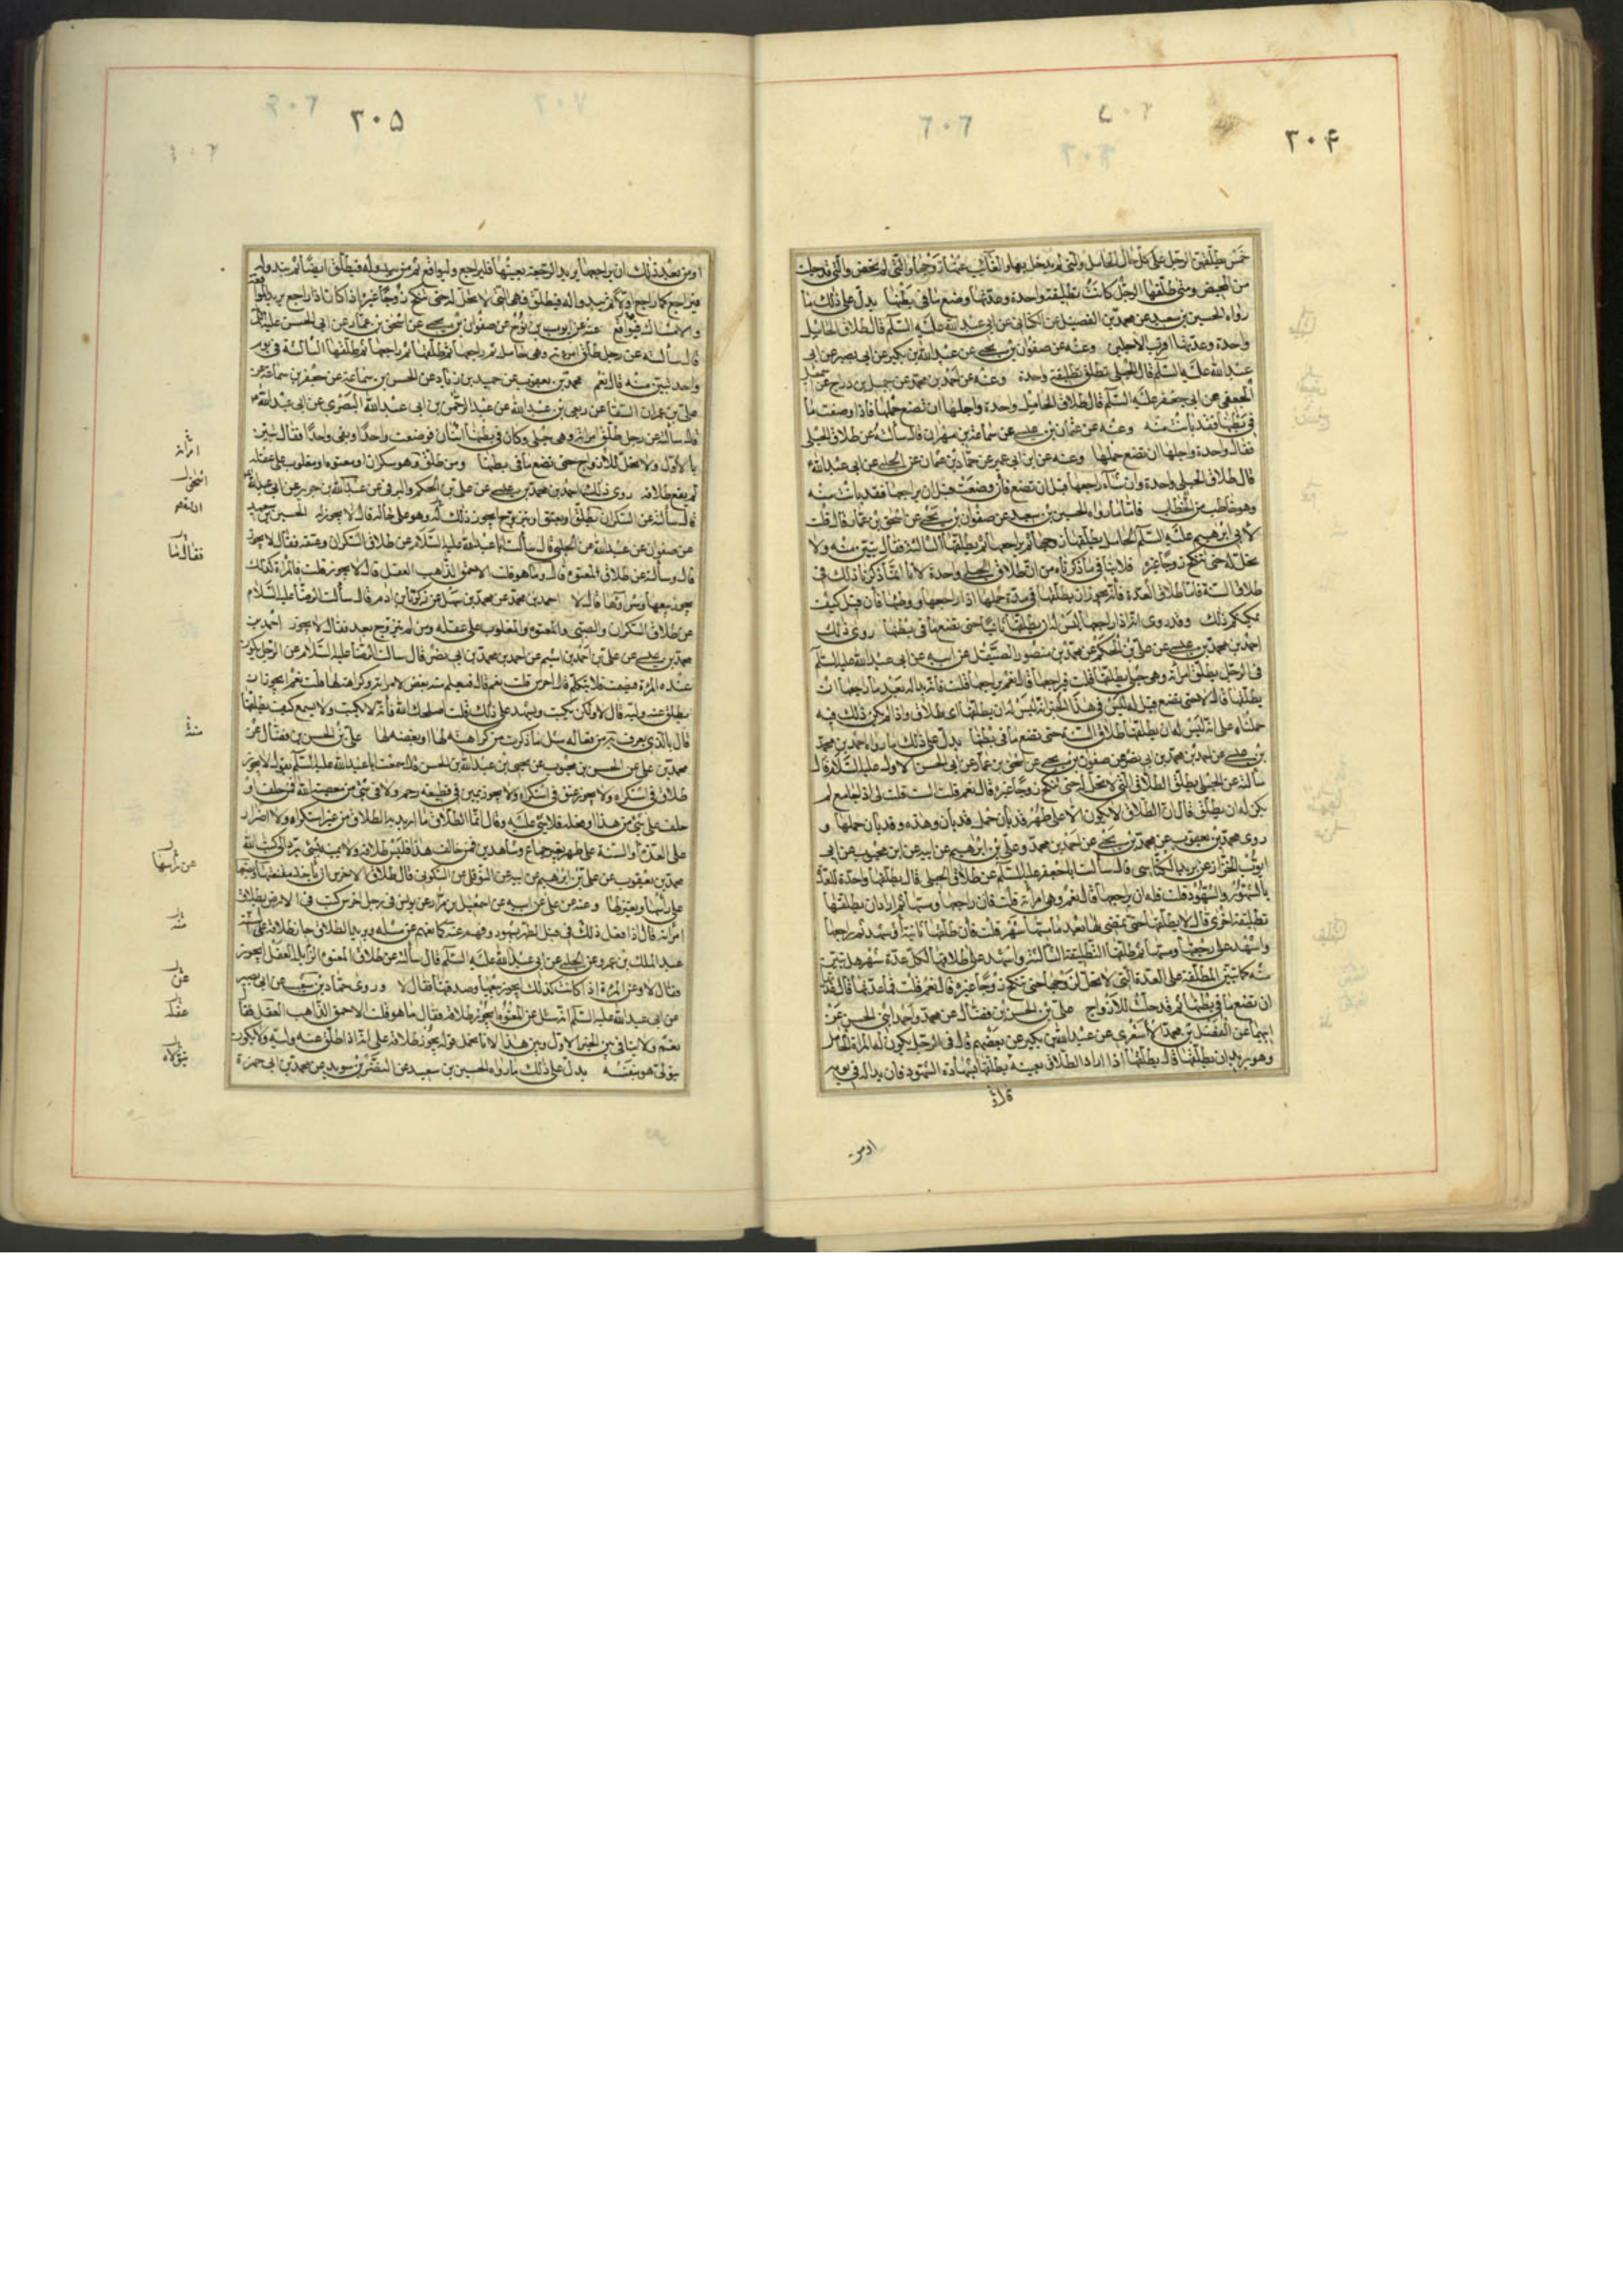 ٢٠۴
خمس يطلقهن الرجل على كل حال الحامل والتي لم يدخل بها والغائب عنها زوجها والتي لم تحض والتي قد جلست
من المحيض ومتى طلقها الرجل كانت تطليقة واحدة وعدتها وضع ما في بطنها يدل على ذلك ما
رواه الحسين بن سعيد عن محمد بن الفضيل عن الكناني عن ابي عبد الله عليه السلم قال طلاق الحامل
واحدة وعدتها اقرب الاجلين وعنه عن صفوان بن يحيى عن عبد الله بن بكير عن ابي بصير عن ابي
عبد الله عليه السلم قال الحبلى تطلق تطليقة واحدة وعنه عن احمد بن محمد عن جميل بن دراج عن اسمعيل
الجعفي عن ابي جعفر عليه السلم قال طلاق الحامل واحدة واجلها ان تضع حملها فاذا وضعت ما
في بطنها فقد بانت منه وعنه عن عثمان بن عيسى عن سماعة بن مهران قال سألته عن طلاق الحبلى
فقال واحدة واجلها ان تضع حملها وعنه عن ابن ابي عمير عن حماد بن عثمان عن الحلبي عن ابي عبد الله
قال طلاق الحبلى واحدة وان شاء راجعها قبل ان تضع فان وضعت قبل ان يراجعها فقد بانت منه
وهو خاطب من الخطاب فاما ما رواه الحسين بن سعيد عن صفوان بن يحيى عن اسحق بن عمار قال قلت
لابي ابرهيم عليه السلم الحامل يطلقها زوجها ثم يراجعها ثم يطلقها الثالثة فقال تبين منه ولا
تحل له حتى تنكح زوجا غيره فلا ينافي ما ذكرناه من ان طلاق الحبلى واحدة لانا انما ذكرنا ذلك في
طلاق السنة فاما طلاق العدة فانه يجوز ان يطلقها في مدة حملها اذا راجعها ووطئها فان قيل كيف
يمكنكم ذلك وقد روى انه اذا راجعها ليس له ان يطلقها ثانيا حتى تضع ما في بطنها روى ذلك
احمد بن محمد بن عيسى عن علي بن الحكم عن محمد بن منصور الصيقل عن ابيه عن ابي عبد الله عليه السلم
في الرجل يطلق امرأته وهي حبلى قال يطلقها قلت فيراجعها قال نعم يراجعها قلت فانه بدا له بعد ما راجعها ان
يطلقها قال لا حتى تضع قيل له ليس في هذا الخبر انه ليس له ان يطلقها اي طلاق واذا لم يكن ذلك فيه
حملناه على انه ليس له ان يطلقها طلاق السنة حتى تضع ما في بطنها يدل على ذلك ما رواه احمد بن محمد
بن عيسى عن احمد بن محمد بن ابي نصر عن صفوان بن يحيى عن اسحق بن عمار عن ابي الحسن الاول عليه السلام قال
سألته عن الحبلى يطلق الطلاق التي لا تحل له حتى تنكح زوجا غيره قال نعم قلت الست قلت لي اذا جامع لم
يكن له ان يطلق قال ان الطلاق لا يكون الا على طهر قد بان وحمل قد بان وهذه قد بان حملها و
روى محمد بن يعقوب عن محمد بن يحيى عن احمد بن محمد وعلي بن ابرهيم عن ابيه عن ابن محبوب عن ابي
ايوب الخزاز عن يزيد الكناسي قال سألت ابا جعفر عليه السلم عن طلاق الحبلى قال يطلقها واحدة للعدة
بالشهور والشهود قلت فله ان يراجعها قال نعم وهي امرأته قلت فان راجعها ومسها ثم اراد ان يطلقها
تطليقة اخرى قال لا يطلقها حتى يمضي لها بعد ما مسها شهر قلت فان طلقها ثانية واشهد ثم راجعها
واشهد على رجعتها ومسها ثم طلقها التطليقة الثالثة واشهد على طلاقها لكل عدة شهر هل تبين
منه كما تبين المطلقة على العدة التي لا تحل لزوجها حتى تنكح زوجا غيره قال نعم قلت فما عدتها قال عدتها
ان تضع ما في بطنها ثم قد حلت للازواج علي بن الحسن بن فضال عن محمد واحمد ابني الحسن عن
ابيهما عن المفضل بن محمد الاشعري عن عبد الله بن بكير عن بعضهم قال في الرجل يكون له المرأة الحامل
وهو يريد ان يطلقها قال يطلقها اذا اراد الطلاق بعينه يطلقها بشهادة الشهود فان بدا له في يومه
او من
٢٠۵
او من بعد ذلك ان يراجعها يريد الرجعة بعينها فليراجع وليواقع ثم يبدو له فيطلق ايضا ثم يبدو له
فيراجع كما راجع اولا ثم يبدو له فيطلق فهي التي لا تحل له حتى تنكح زوجا غيره اذا كان اذا راجع يريد المواقعة
والامساك فيواقع عنه عن ايوب بن نوح عن صفوان بن يحيى عن اسحق بن عمار عن ابي الحسن عليه السلم
قال سألته عن رجل طلق امرأته وهي حامل ثم راجعها ثم طلقها ثم راجعها ثم طلقها الثالثة في يوم
واحد تبين منه قال نعم محمد بن يعقوب عن حميد بن زياد عن الحسن بن سماعة عن جعفر بن سماعة عن
علي بن عمران السقا عن ربعي بن عبد الله عن عبد الرحمن بن ابي عبد الله البصري عن ابي عبد الله
قال سألته عن رجل طلق امرأته وهي حبلى وكان في بطنها اثنان فوضعت واحدا وبقى واحدا فقال تبين
بالاول ولا تحل للازواج حتى تضع ما في بطنها ومن طلق وهو سكران او معتوه او مغلوب على عقله
لم يقع طلاقه روى ذلك احمد بن محمد بن عيسى عن علي بن الحكم والبرقي عن عبد الله بن عن ابي عبد الله
قال سألته عن السكران يطلق او يعتق او يتزوج ايجوز ذلك له وهو على حاله قال لا يجوز له الحسين بن سعيد
عن صفوان عن عبد الله عن الحلبي قال سألت ابا عبد الله عليه السلام عن طلاق السكران وعتقه فقال لا يجوز
قال وسألته عن طلاق المعتوه قال وما هو قلت الاحمق الذاهب العقل قال لا يجوز قلت فالمرأة كذلك
يجوز بيعها وشراؤها قال لا احمد بن محمد عن محمد بن سهل عن زكريا بن ادم قال سألت الرضا عليه السلام
عن طلاق السكران والصبي والمعتوه والمغلوب على عقله ومن لم يتزوج بعد فقال لا يجوز احمد بن
محمد بن عيسى عن علي بن احمد بن اشيم عن احمد بن محمد بن ابي نصر قال سألت الرضا عليه السلام عن الرجل يكون
عنده المرأة فيصمت فلا يتكلم قال اخرس قلت نعم قال فيعلم منه بغض لامرأته وكراهته لها قلت نعم ايجوز ان
يطلق عنه وليه قال لا ولكن يكتب ويشهد على ذلك قلت اصلحك الله فانه لا يكتب ولا يسمع كيف يطلقها
قال بالذي يعرف به من فعاله مثل ما ذكرت من كراهته لها او بغضه لها علي بن الحسن بن فضال عن
محمد بن علي عن الحسن بن محبوب عن يحيى بن عبد الله بن الحسن قال سمعت ابا عبد الله عليه السلم يقول لا يجوز
طلاق في استكراه ولا يجوز عتق في استكراه ولا يجوز يمين في قطيعة رحم ولا في شيء من معصية الله فمن حلف او
حلف على شيء من هذا وفعله فلا شيء عليه وقال انما الطلاق ما اريد به الطلاق من غير استكراه ولا اضرار
على العدة والسنة على طهر بغير جماع وشاهدين فمن خالف هذا فليس طلاقه ولا يمينه بشيء يرد الى كتاب الله
محمد بن يعقوب عن علي بن ابرهيم عن ابيه عن النوفلي عن السكوني قال طلاق الاخرس ان يأخذ مقنعتها ويضعها
على رأسها ويعتزلها وعنه عن علي عن ابيه عن اسمعيل بن مرار عن يونس في رجل اخرس كتب في الارض بطلاق
امرأته قال اذا فعل ذلك في قبل الطهر بشهود وفهم عنه كما يفهم عن مثله ويريد الطلاق جاز طلاقه على السنة
عبد الملك بن عمرو عن الحلبي عن ابي عبد الله عليه السلم قال سألته عن طلاق المعتوه الزايل العقل ايجوز
فقال لا وعن المرأة اذا كانت كذلك ايجوز بيعها وصدقتها فقال لا وروى حماد بن عن ابي بصير
عن ابي عبد الله عليه السلم انه سئل عن المعتوه ايجوز طلاقه فقال ما هو قلت الاحمق الذاهب العقل فقال
نعم ولا ينافي بين الخبر الاول وبين هذا لانا نحمل قوله يجوز طلاقه على انه اذا طلق عنه وليه ولا يكون
يتولى هو بنفسه يدل على ذلك ما رواه الحسين بن سعيد عن النضر بن سويد عن محمد بن ابي حمزة
امرأته
منه
عن رأسها
منه
عن
عقله